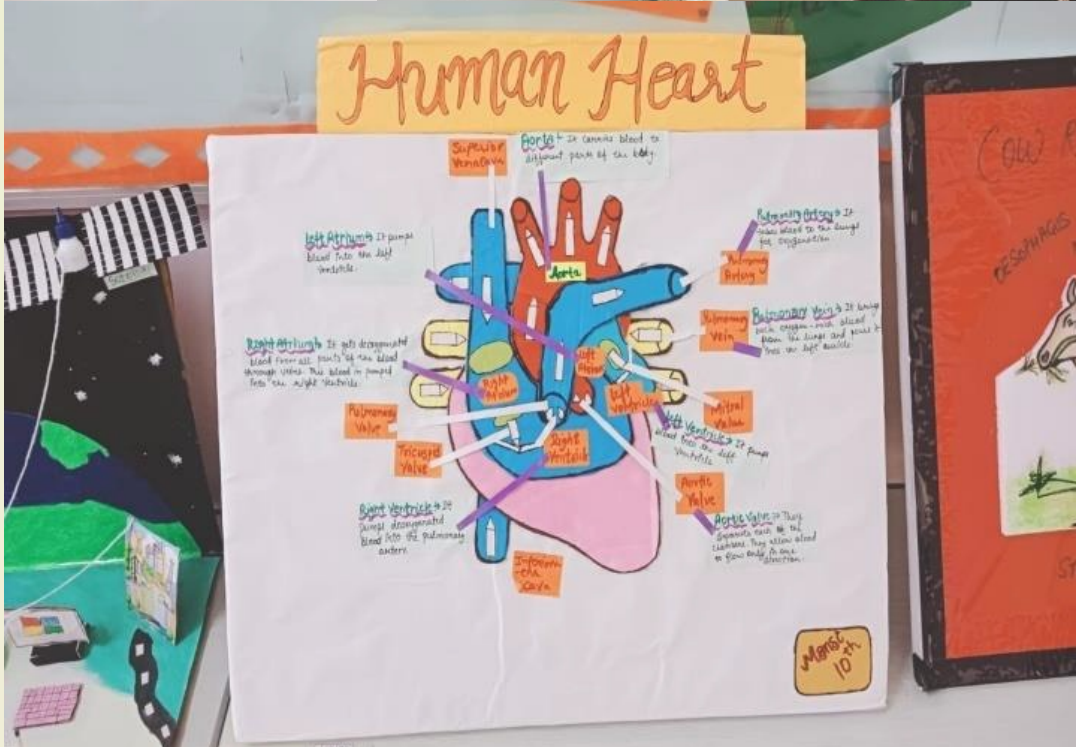 Human Heart
Superior
VenaCava
Aorta - It carries blood to
different parts of the body.
Left Atrium → It pumps
blood into the left
Ventricle.
Pulmonary Artery → It
takes blood to the lungs
for oxygenation
Pulmonary
Artery
Aorta
Pulmonary
Vein
Pulmonary Vein → It brings
rich oxygen-rich blood
from the lungs and
into the left auricle
Right Atrium → It gets deoxygenated
blood from all parts of the blood
through veins. This blood is pumped
into the right ventricle.
Left
Atrium
Right
Atrium
Left
Ventricle
Mitral
Valve
Pulmonary
Valve
Tricuspid
Valve
Right
Ventricle
Left Ventricle → It pumps
blood into the left
Ventricle
Aortic
Valve
Right Ventricle → It
pumps deoxygenated
blood into the pulmonary
Aortic Valve → They
separate each of the
chambers. They allow blood
to flow only in one
direction.
Cava
10th
COW
OESOPHAGUS